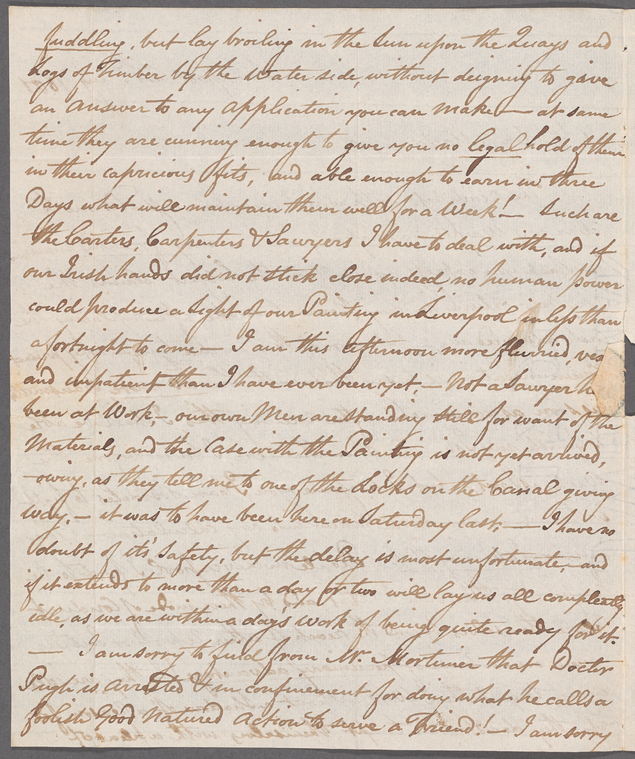 fuddling, but lay broiling in the Sun upon the Quays and
Logs of Timber by the Water side, without deigning to give
an answer to any application you can make — at same
time they are cunning enough to give you no legal hold of them
in their capricious fits, and able enough to earn in three
Days what will maintain them well for a Week! — Such are
the Carters, Carpenters & Sawyers I have to deal with, and if
our Irish hands did not stick close indeed no human power
could produce a Sight of our Painting in Liverpool in less than
a fortnight to come — I am this afternoon more flurried,
and impatient than I have ever been yet, — Not a Sawyer
been at Work, — our own Men are standing still for want of the
Materials, and the Case with the Painting is not yet arrived,
-owing, as they tell me to one of the Locks on the Canal giving
way, — it was to have been here on Saturday last, — I have no
doubt of it's Safety, but the delay is most unfortunate, and
if it extends to more than a day or two will lay us all compleatly
idle, as we are within a days work of being quite ready for it.
— I am sorry to find from Mr. Mortimer that Doctor
Pugh is arrested & in confinement for doing what he calls a
foolish Good Natured Action to serve a Friend! — I am sorry